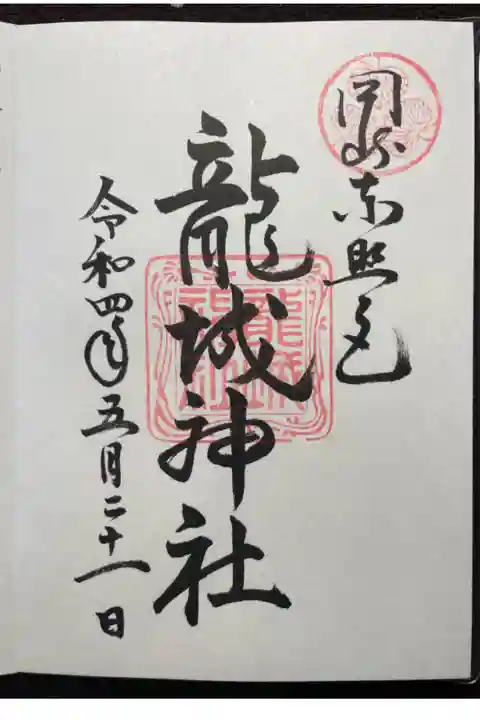 岡崎東照宮
龍城神社
令和四年五月二十一日
龍城神社